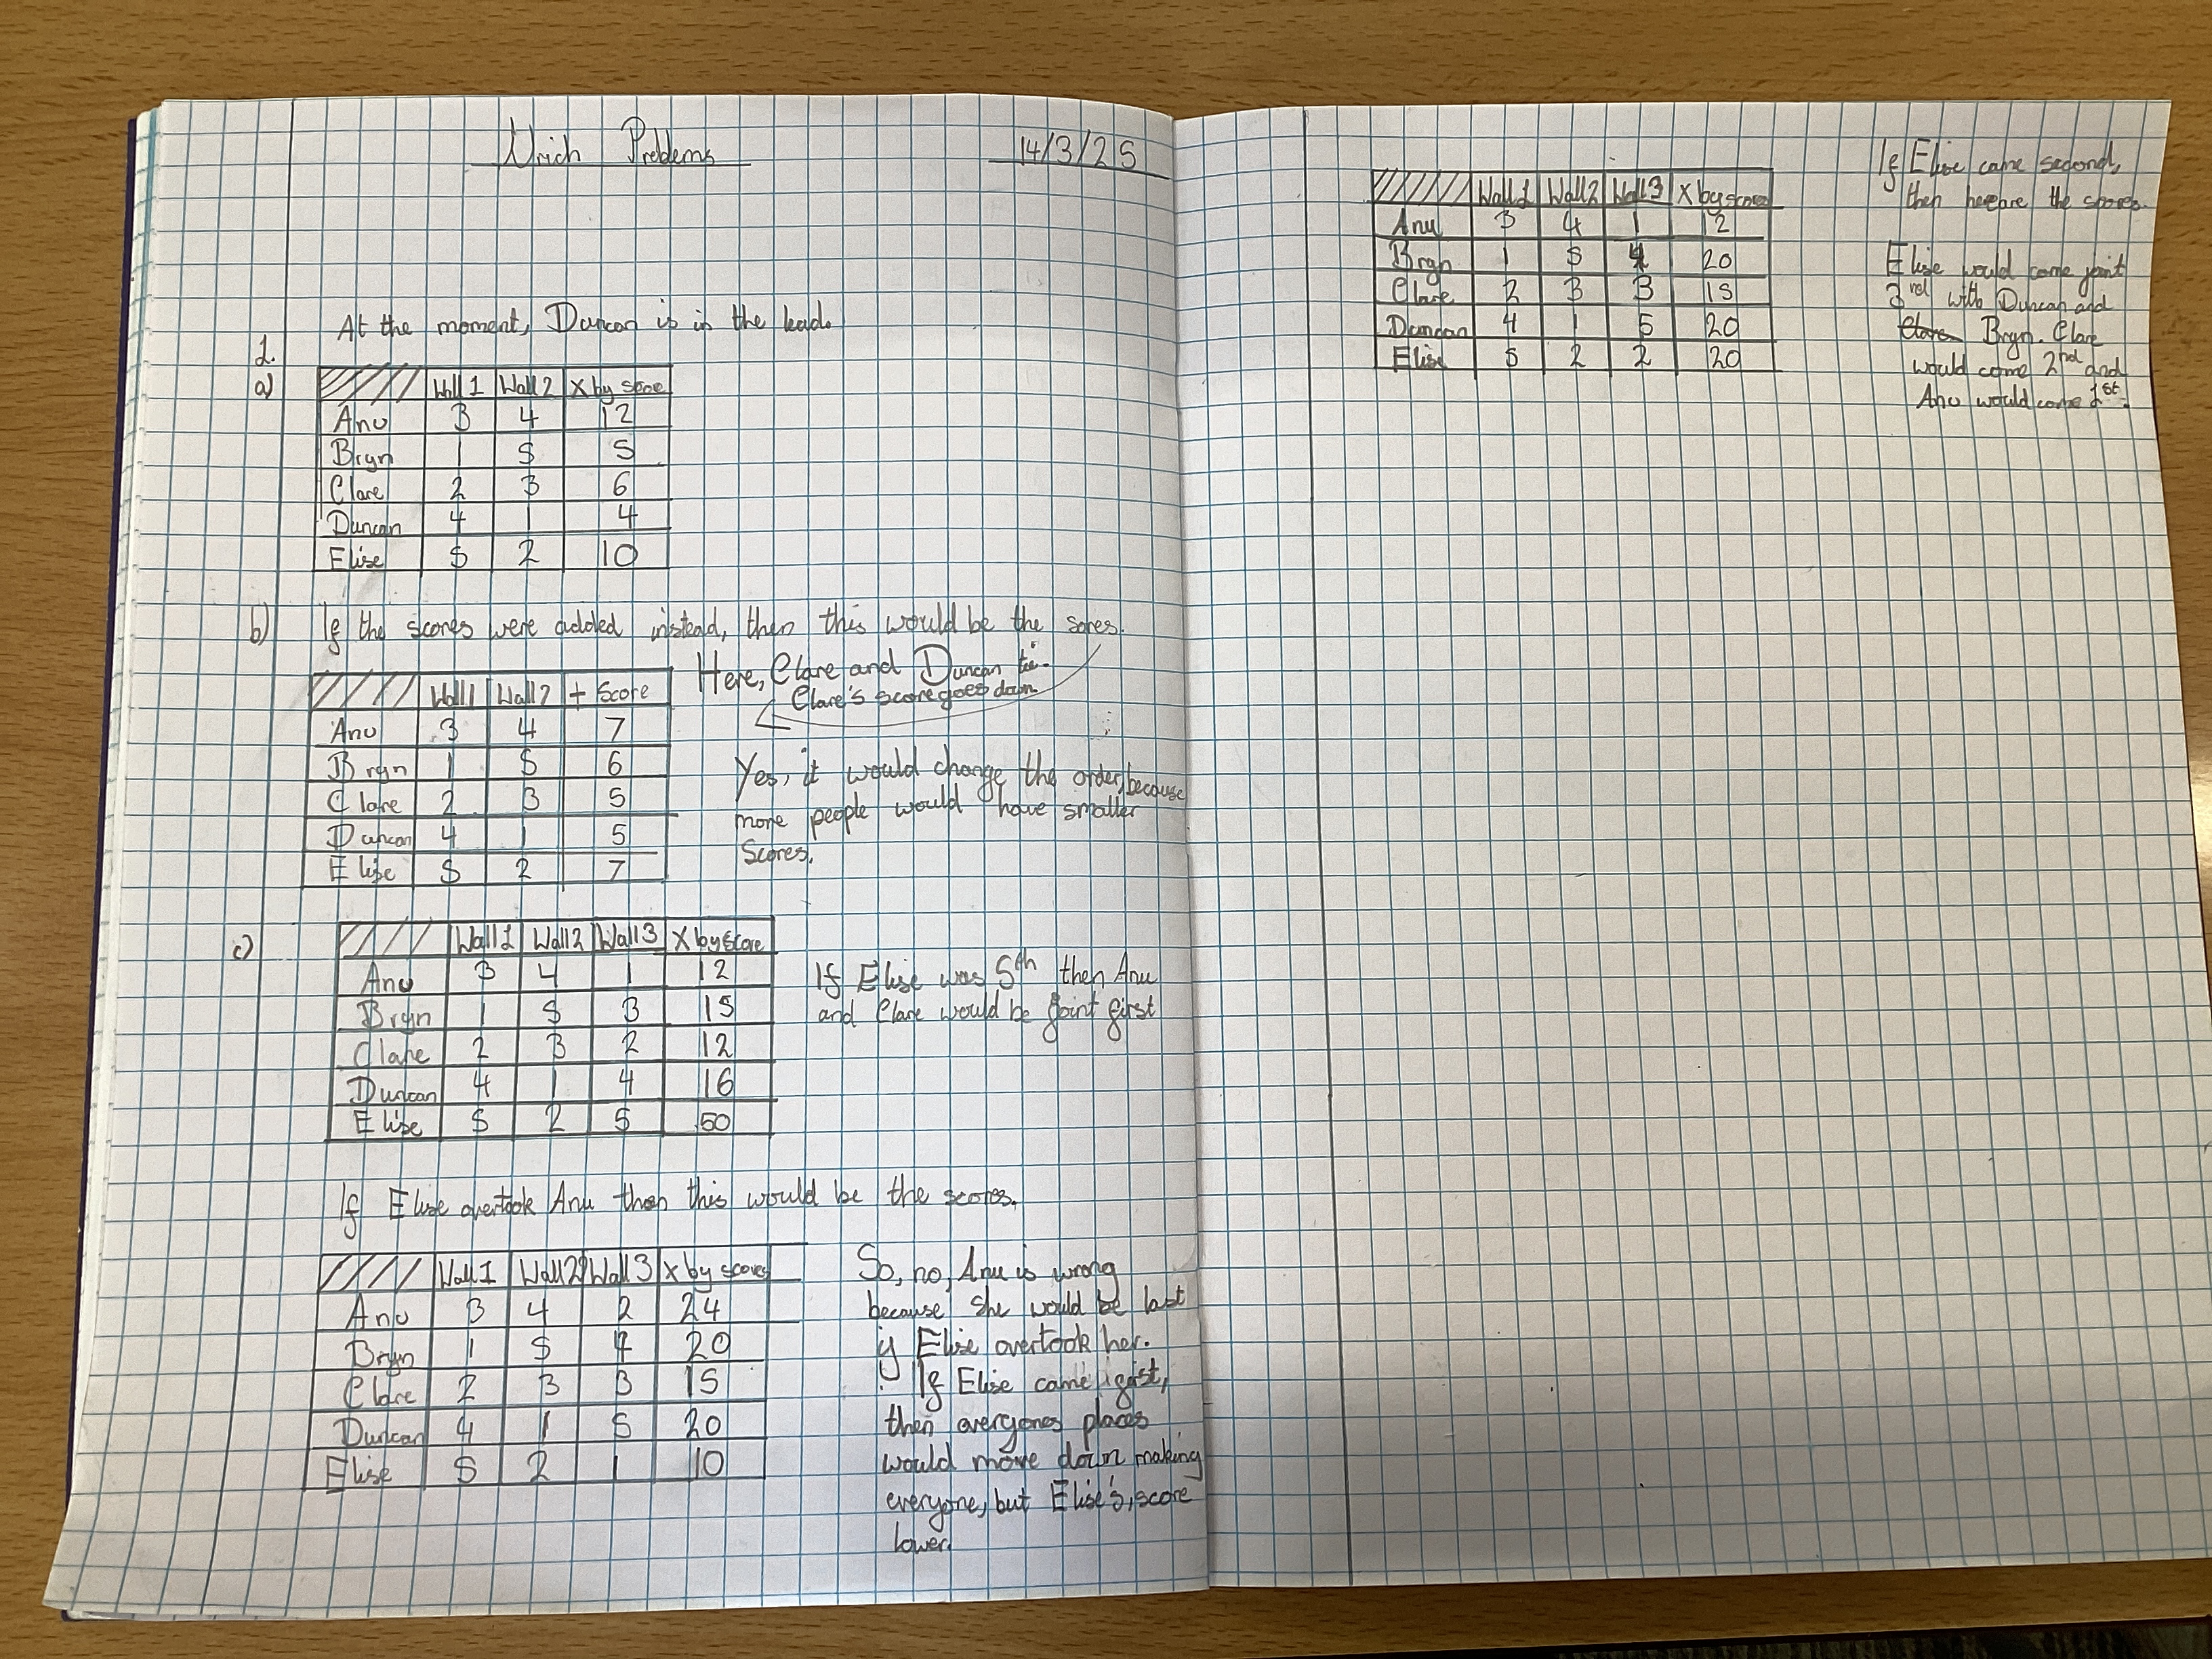 Nrich Problems
14/3/25
At the moment, Duncan is in the lead.
1.
a)
Wall 1 Wall 2 X by score
Anu 3 4 12
Bryn 1 5 5
Clare 2 3 6
Duncan 4 1 4
Elise 5 2 10
b) If the scores were added instead, then this would be the sores.
Wall 1 Wall 2 + Score
Anu 3 4 7
Bryn 1 5 6
Clare 2 3 5
Duncan 4 1 5
Elise 5 2 7
Here, Clare and Duncan tie.
Clare's score goes down
Yes, it would change the order, because
more people would have smaller
scores.
c)
Wall 1 Wall 2 Wall 3 X by score
Anu 3 4 1 12
Bryn 1 5 3 15
Clare 2 3 2 12
Duncan 4 1 4 16
Elise 5 2 5 50
If Elise was 5th then Anu
and Clare would be joint first
If Elise overtook Anu then this would be the scores.
Wall 1 Wall 2 Wall 3 X by scores
Anu 3 4 2 24
Bryn 1 5 4 20
Clare 2 3 3 15
Duncan 4 1 5 20
Elise 5 2 1 10
So, no, Anu is wrong
because she would be last
if Elise overtook her.
If Elise came first,
then everyones places
would move down making
everyone, but Elise's, score
lower.
Wall 1 Wall 2 Wall 3 X by score
Anu 3 4 1 12
Bryn 1 5 4 20
Clare 2 3 3 15
Duncan 4 1 5 20
Elise 5 2 2 20
If Elise came second,
then here are the scores.
Elise would come joint
3rd with Duncan and
Clare Bryn. Clare
would come 2nd and
Anu would come 1st.